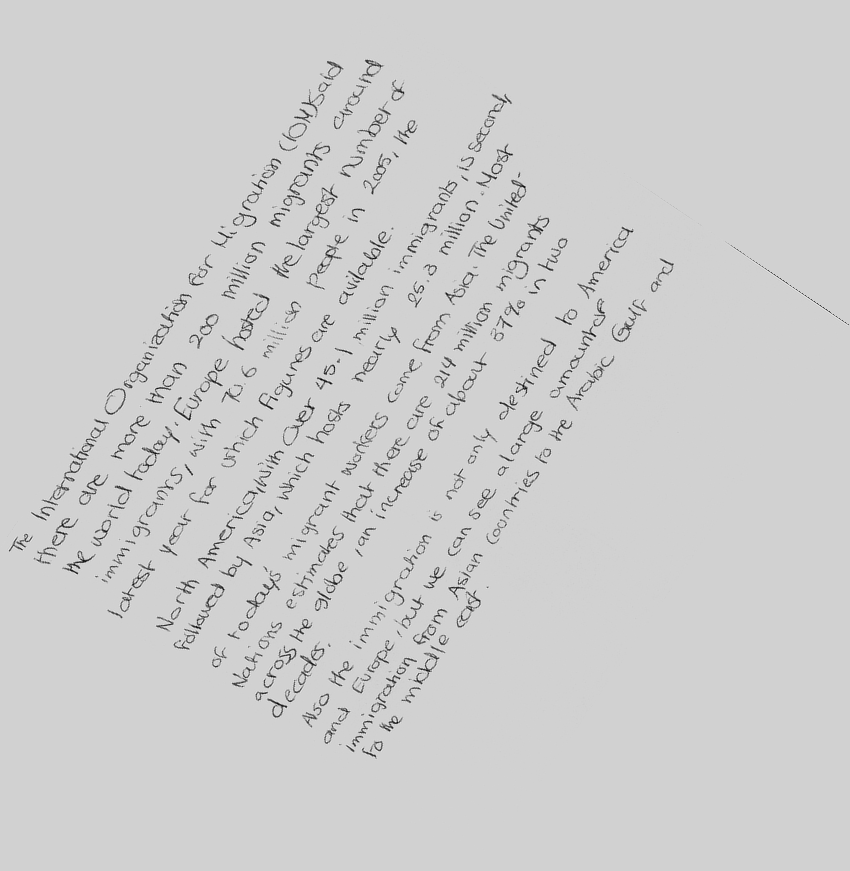 The International Organization for Migration (IOM) said
there are more than 200 million migrants around
the world today. Europe hosted the largest number of
immigrants, with 70.6 million people in 2005, the
latest year for which figures are available.
North America, with over 45.1 million immigrants, is second,
followed by Asia, which hosts nearly 25.3 million. Most
of todays' migrant workers come from Asia. The United-
Nations estimates that there are 214 million migrants
across the globe, an increase of about 37% in two
decades.
Also the immigration is not only destined to America
and Europe, but we can see a large amount of
immigration from Asian countries to the Arabic Gulf and
to the middle east.